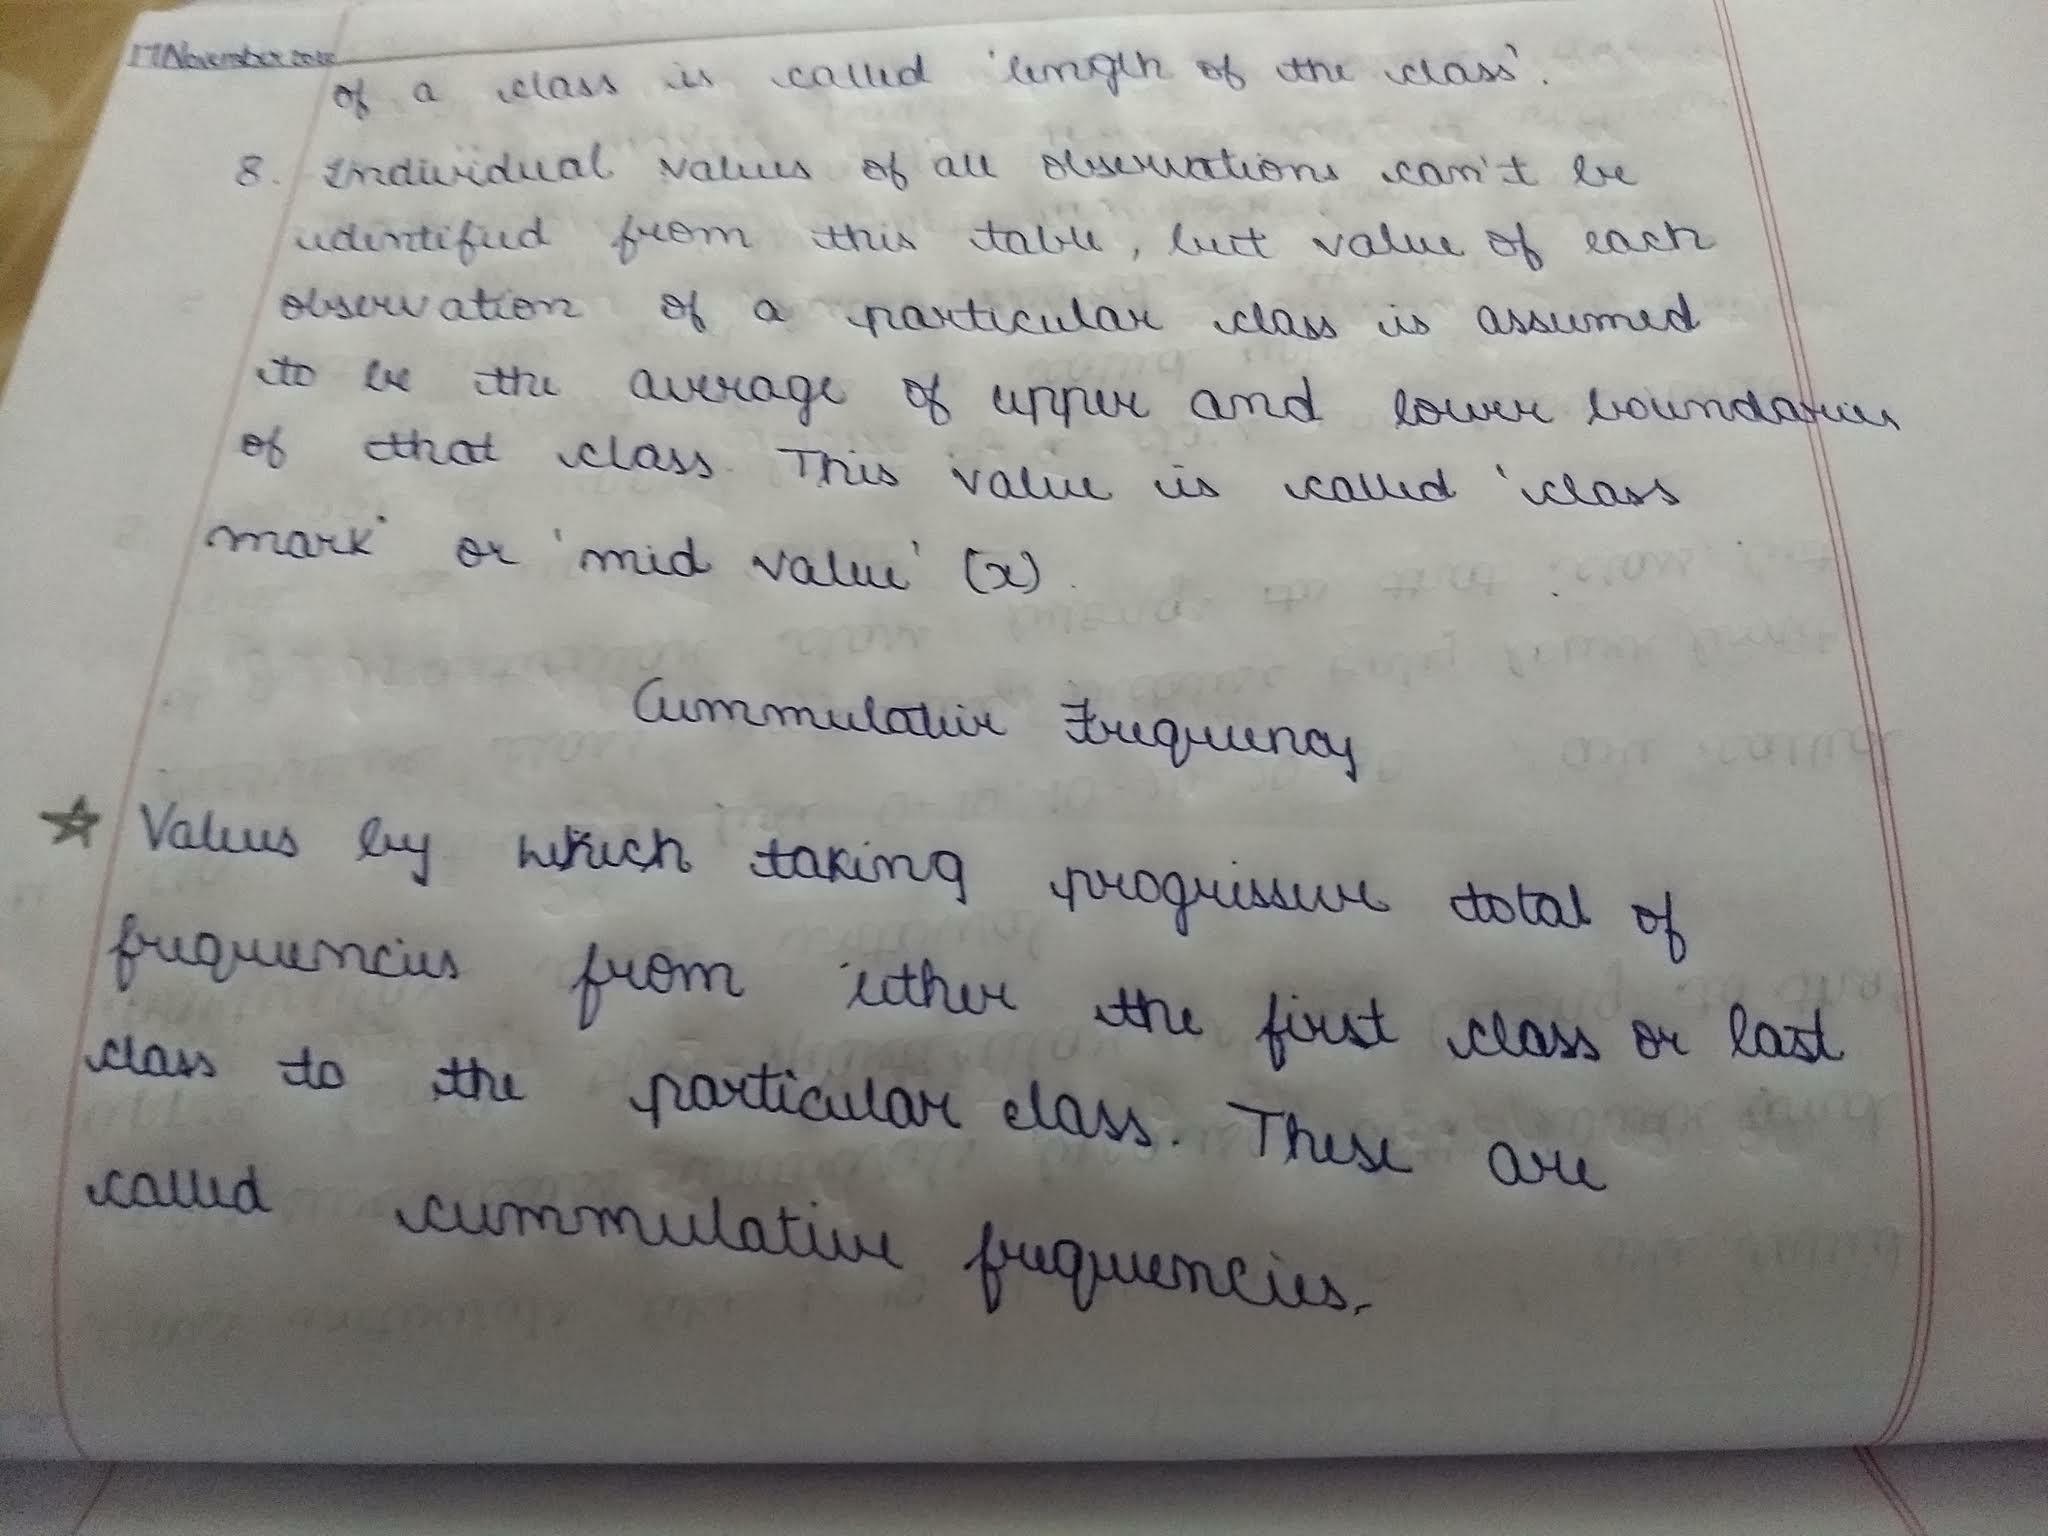 17 November
of a class is called 'length of the class'.
8. Individual values of all observations can't be
identified from this table, but value of each
observation of a particular class is assumed
to be the average of upper and lower boundaries
of that class. This value is called 'class
mark' or 'mid value' (x).
Cummulative Frequency
☆ Values by which taking progressive total of
frequencies from either the first class or last
class to the particular class. These are
called cummulative frequencies.